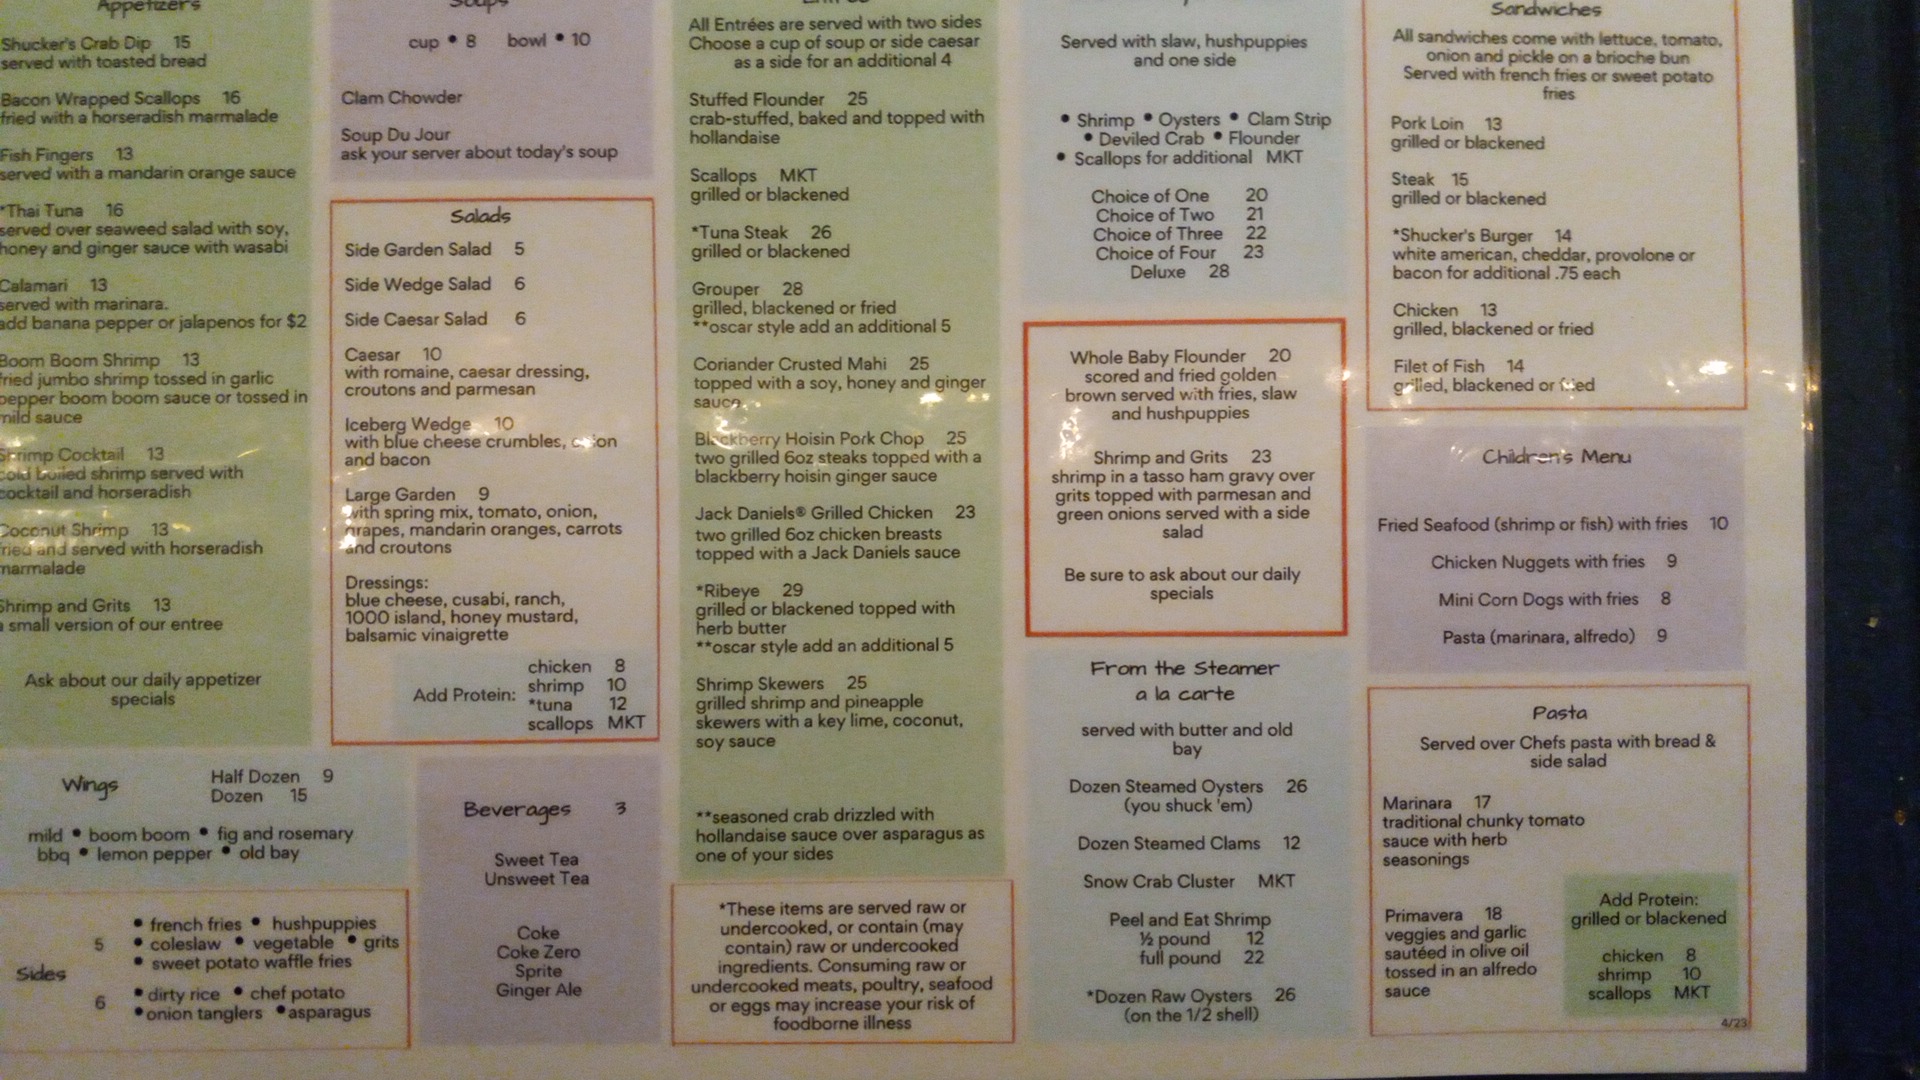 Appetizers
Shucker's Crab Dip 15
served with toasted bread
Bacon Wrapped Scallops 16
fried with a horseradish marmalade
Fish Fingers 13
served with a mandarin orange sauce
*Thai Tuna 16
served over seaweed salad with soy,
honey and ginger sauce with wasabi
Calamari 13
served with marinara.
add banana pepper or jalapenos for $2
Boom Boom Shrimp 13
fried jumbo shrimp tossed in garlic
pepper boom boom sauce or tossed in
mild sauce
Shrimp Cocktail 13
cold boiled shrimp served with
cocktail and horseradish
Coconut Shrimp 13
fried and served with horseradish
marmalade
Shrimp and Grits 13
a small version of our entree
Ask about our daily appetizer
specials
Wings
Half Dozen 9
Dozen 15
mild • boom boom • fig and rosemary
bbq • lemon pepper • old bay
Sides
5
• french fries • hushpuppies
• coleslaw • vegetable • grits
• sweet potato waffle fries
6
• dirty rice • chef potato
• onion tanglers • asparagus
Soups
cup • 8 bowl • 10
Clam Chowder
Soup Du Jour
ask your server about today's soup
Salads
Side Garden Salad 5
Side Wedge Salad 6
Side Caesar Salad 6
Caesar 10
with romaine, caesar dressing,
croutons and parmesan
Iceberg Wedge 10
with blue cheese crumbles, onion
and bacon
Large Garden 9
with spring mix, tomato, onion,
grapes, mandarin oranges, carrots
and croutons
Dressings:
blue cheese, cusabi, ranch,
1000 island, honey mustard,
balsamic vinaigrette
Add Protein:
chicken 8
shrimp 10
*tuna 12
scallops MKT
Beverages 3
Sweet Tea
Unsweet Tea
Coke
Coke Zero
Sprite
Ginger Ale
All Entrées are served with two sides
Choose a cup of soup or side caesar
as a side for an additional 4
Stuffed Flounder 25
crab-stuffed, baked and topped with
hollandaise
Scallops MKT
grilled or blackened
*Tuna Steak 26
grilled or blackened
Grouper 28
grilled, blackened or fried
**oscar style add an additional 5
Coriander Crusted Mahi 25
topped with a soy, honey and ginger
sauce
Blackberry Hoisin Pork Chop 25
two grilled 6oz steaks topped with a
blackberry hoisin ginger sauce
Jack Daniels® Grilled Chicken 23
two grilled 6oz chicken breasts
topped with a Jack Daniels sauce
*Ribeye 29
grilled or blackened topped with
herb butter
**oscar style add an additional 5
Shrimp Skewers 25
grilled shrimp and pineapple
skewers with a key lime, coconut,
soy sauce
**seasoned crab drizzled with
hollandaise sauce over asparagus as
one of your sides
*These items are served raw or
undercooked, or contain (may
contain) raw or undercooked
ingredients. Consuming raw or
undercooked meats, poultry, seafood
or eggs may increase your risk of
foodborne illness
Served with slaw, hushpuppies
and one side
• Shrimp • Oysters • Clam Strip
• Deviled Crab • Flounder
• Scallops for additional MKT
Choice of One 20
Choice of Two 21
Choice of Three 22
Choice of Four 23
Deluxe 28
Whole Baby Flounder 20
scored and fried golden
brown served with fries, slaw
and hushpuppies
Shrimp and Grits 23
shrimp in a tasso ham gravy over
grits topped with parmesan and
green onions served with a side
salad
Be sure to ask about our daily
specials
From the Steamer
a la carte
served with butter and old
bay
Dozen Steamed Oysters 26
(you shuck 'em)
Dozen Steamed Clams 12
Snow Crab Cluster MKT
Peel and Eat Shrimp
½ pound 12
full pound 22
*Dozen Raw Oysters 26
(on the 1/2 shell)
Sandwiches
All sandwiches come with lettuce, tomato,
onion and pickle on a brioche bun
Served with french fries or sweet potato
fries
Pork Loin 13
grilled or blackened
Steak 15
grilled or blackened
*Shucker's Burger 14
white american, cheddar, provolone or
bacon for additional .75 each
Chicken 13
grilled, blackened or fried
Filet of Fish 14
grilled, blackened or fried
Children's Menu
Fried Seafood (shrimp or fish) with fries 10
Chicken Nuggets with fries 9
Mini Corn Dogs with fries 8
Pasta (marinara, alfredo) 9
Pasta
Served over Chefs pasta with bread &
side salad
Marinara 17
traditional chunky tomato
sauce with herb
seasonings
Primavera 18
veggies and garlic
sautéed in olive oil
tossed in an alfredo
sauce
Add Protein:
grilled or blackened
chicken 8
shrimp 10
scallops MKT
4/23